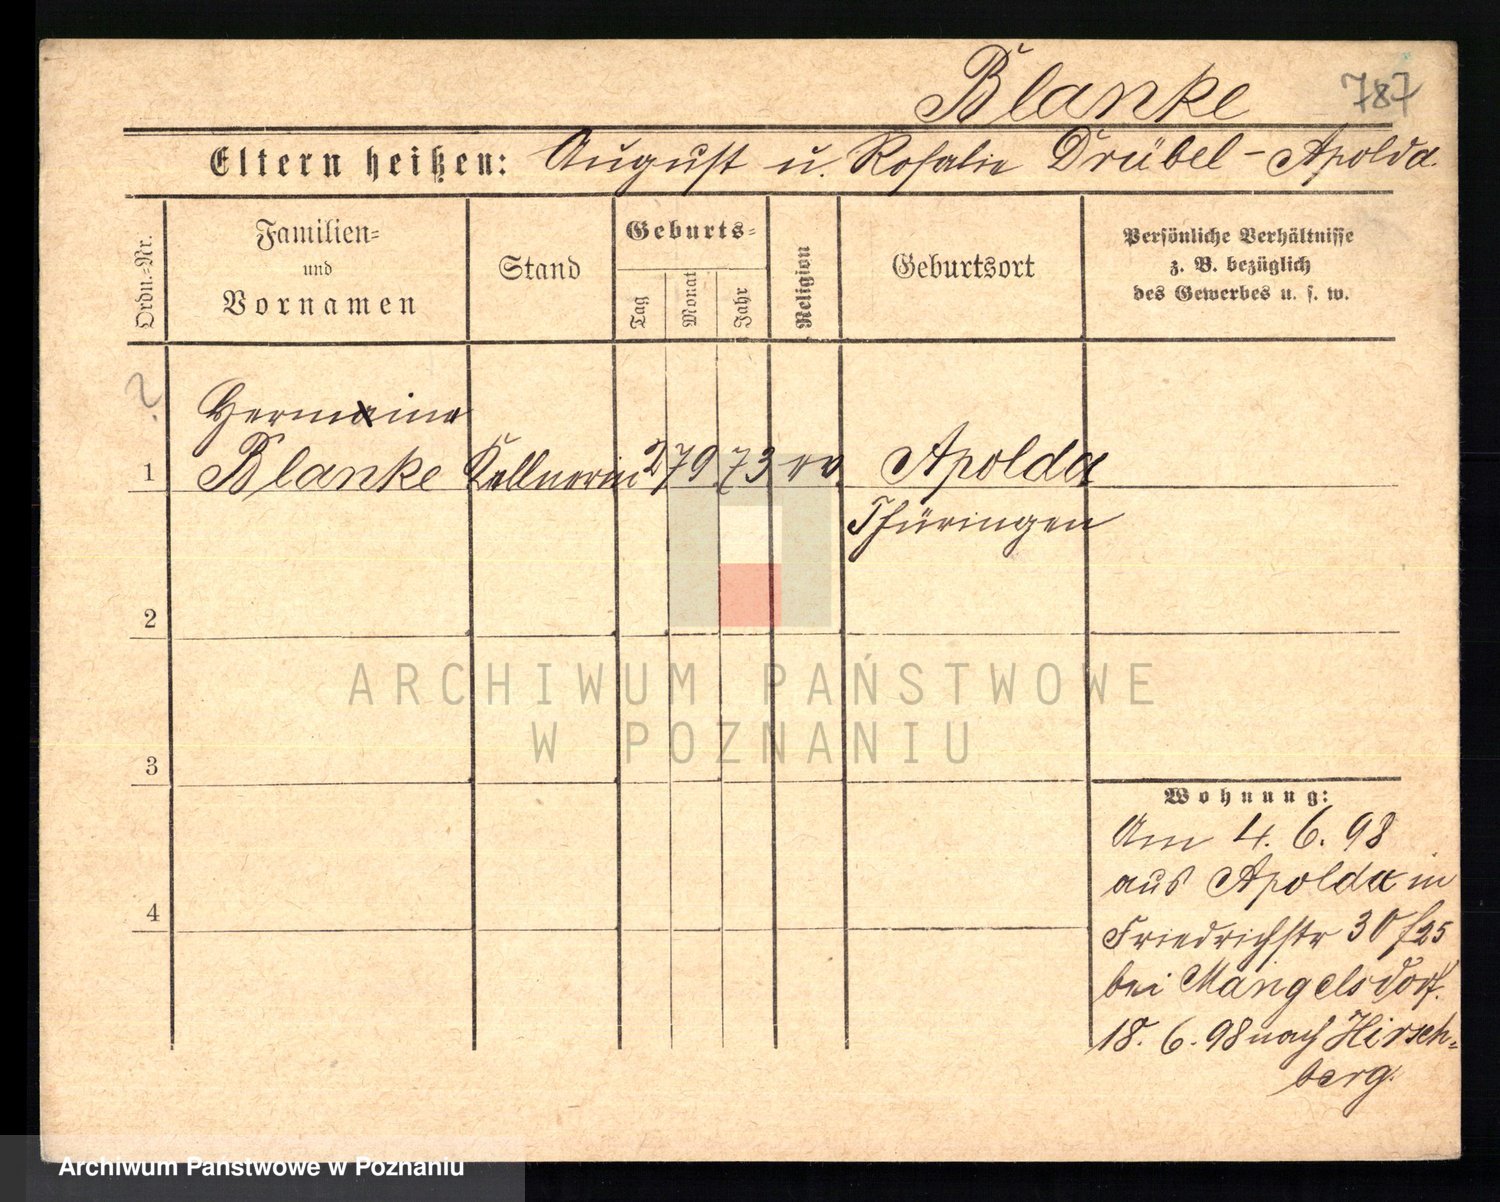 Blanke 787
Eltern heißen: August u. Rosalie Drübel - Apolda
Ordn.-Nr.
Familien-
und
Vornamen
Stand
Geburts-
Tag
Monat
Jahr
Religion
Geburtsort
Persönliche Verhältnisse
z. B. bezüglich
des Gewerbes u. s. w.
?
Hermine
1 Blanke Kellnerin 2 7 9 73 ev Apolda
Thüringen
2
ARCHIWUM PAŃSTWOWE
W POZNANIU
3
Wohnung:
Am 4. 6. 98
aus Apolda in
4
Friedrichstr 30 f25
bei Mangelsdorf.
18. 6. 98 nach Hirsch-
berg.
Archiwum Państwowe w Poznaniu